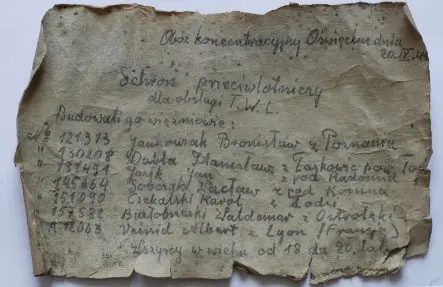 Obóz koncentracyjny Oświęcim dnia
20.IX.44
Schron przeciwlotniczy
dla obsługi T.W.L.
Budowali go więźniowie:
No 121313 Jankowiak Bronisław z Poznania
" 130208 Dubla Stanisław z Łaskowic pow. Tar
" 131491 Jasik Jan z pod Radomia
" 145664 Sobczak Wacław z pod Konina
" 151090 Czekalski Karol z Łodzi
" 157582 Białobrzeski Waldemar z Ostrołęki
A 12063 Veissid Albert z Lyon (Francja)
Wszyscy w wieku od 18 do 20 lat